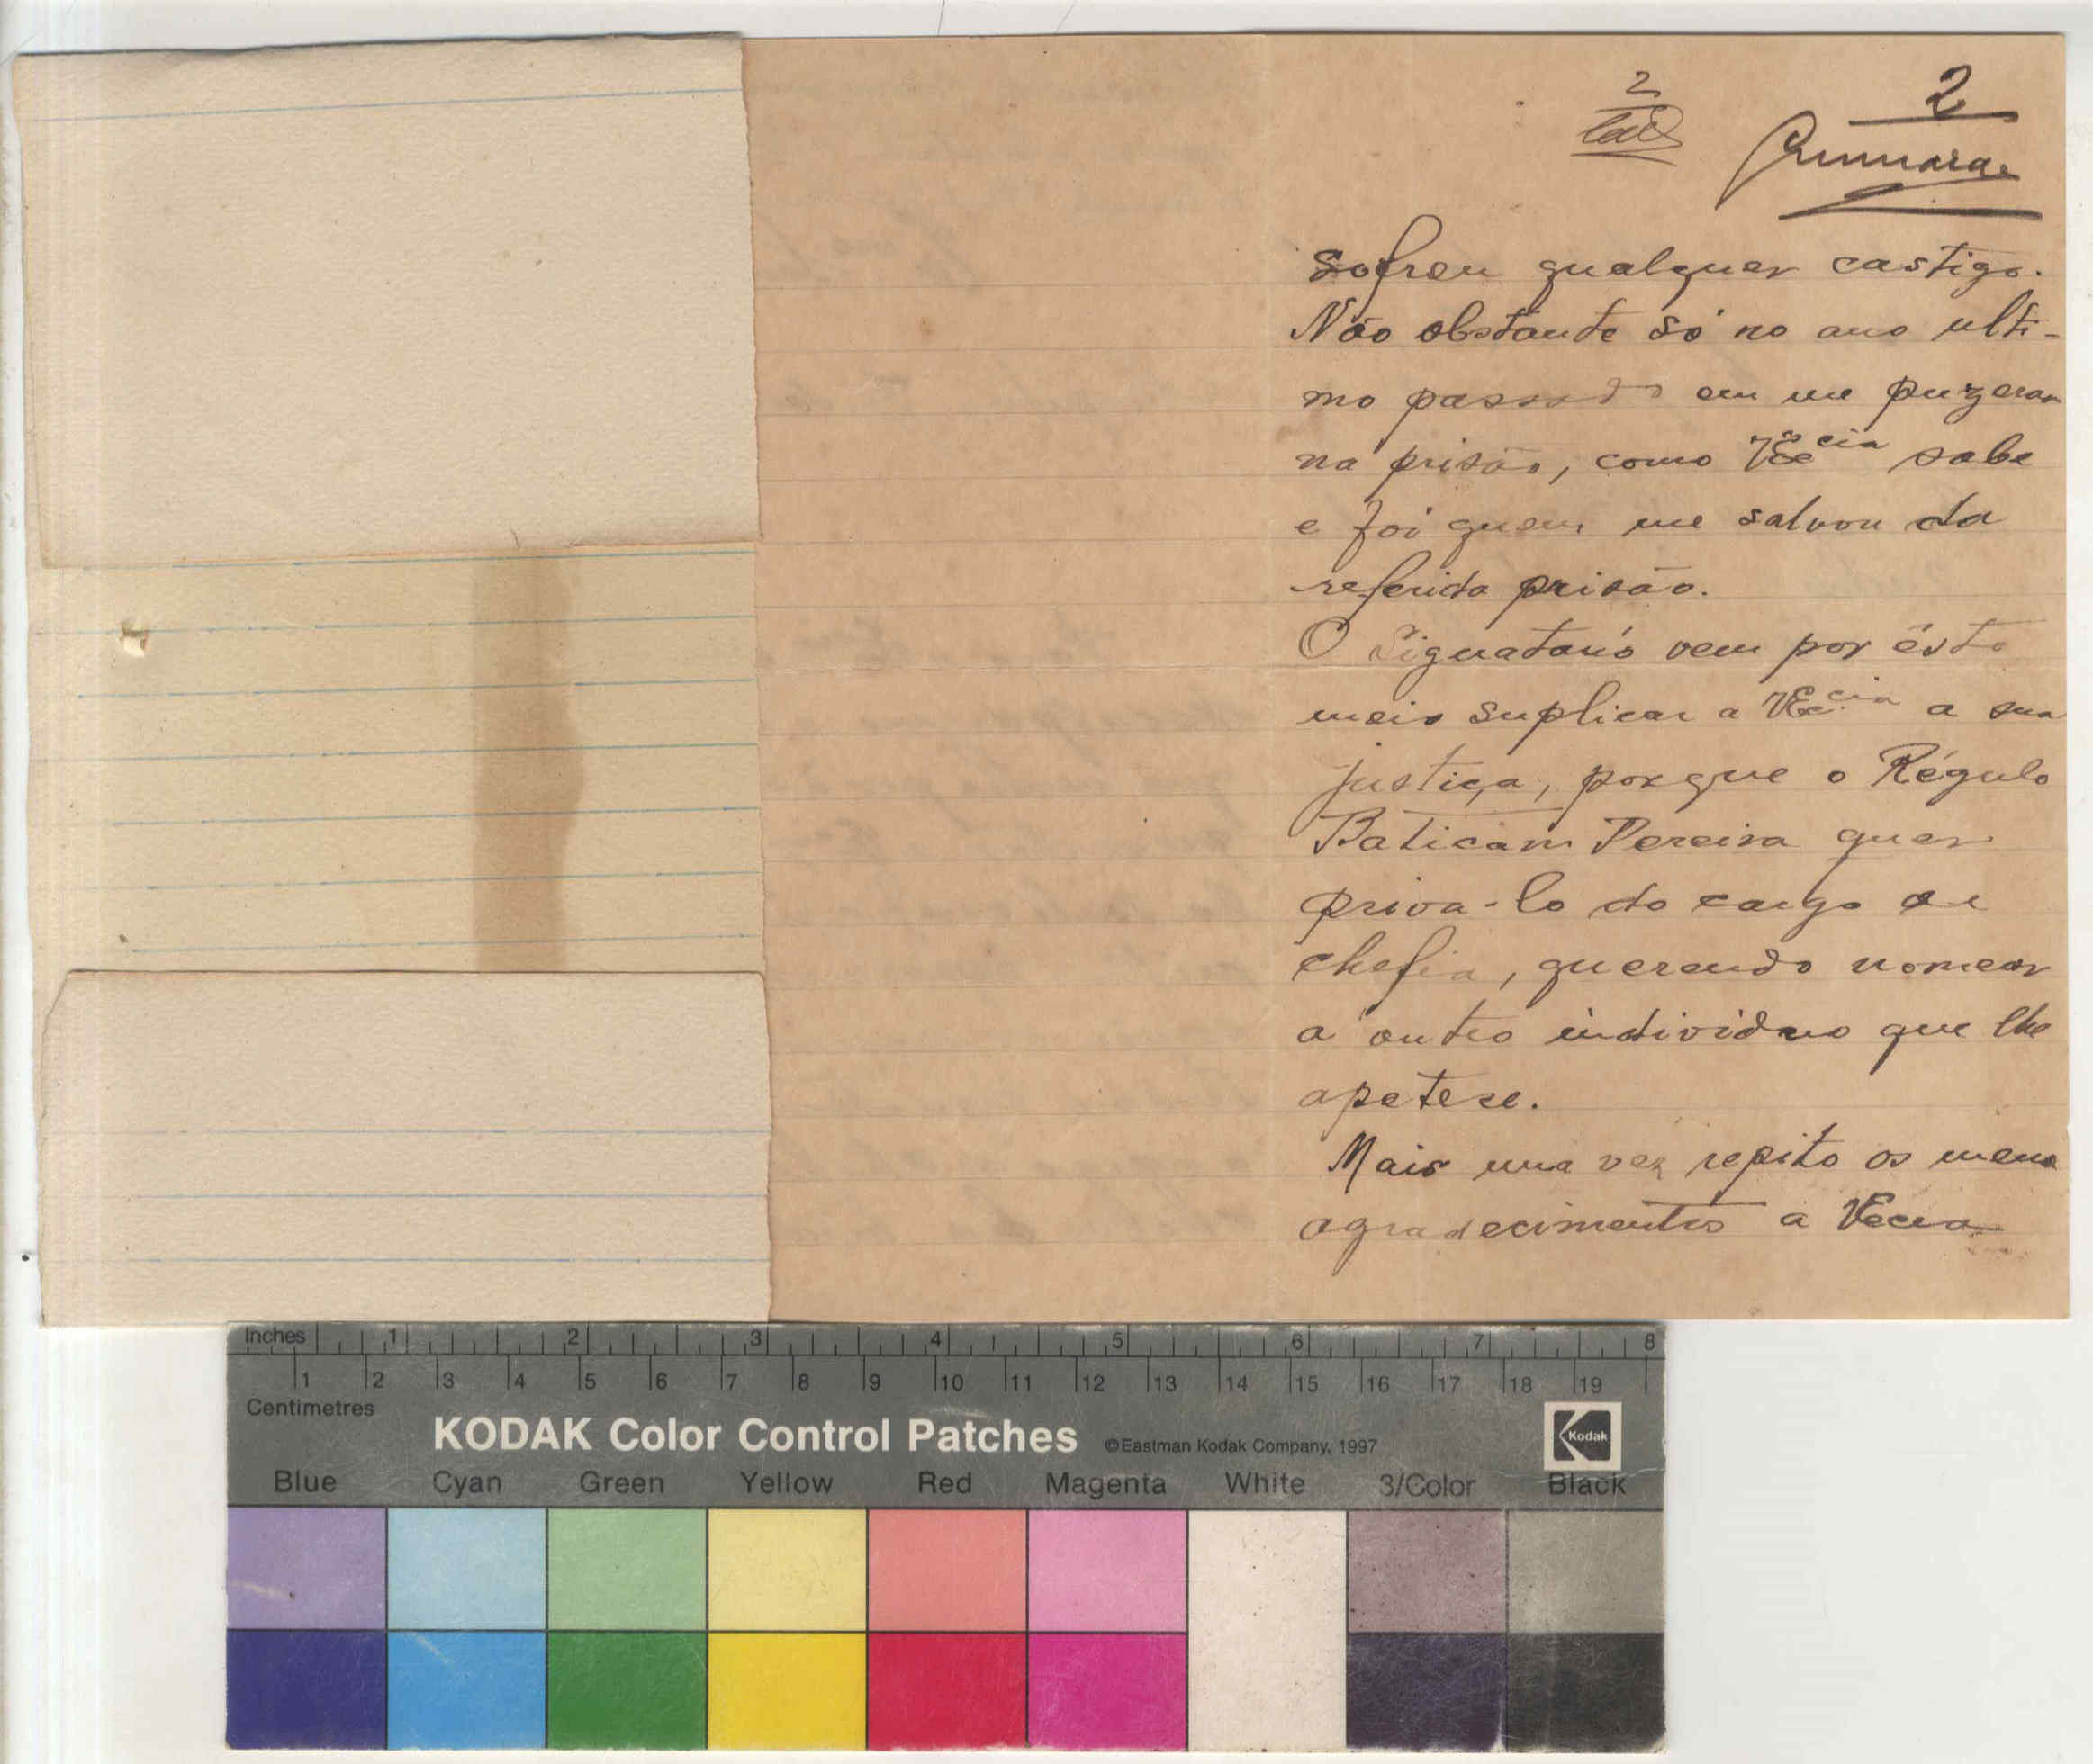 2
2
Sofreu qualquer castigo.
Não obstante só no ano ulti-
mo passado em me puzeram
na prisão, como VEcia sabe
e foi quem me salvou da
referida prisão.
O Signatário vem por êste
meio suplicar a VEcia a sua
justiça, porque o Régulo
Baticam Pereira quer
priva-lo do cargo de
chefia, querendo nomear
a outro individuo que lhe
apetese.
Mais uma vez repito os meus
agradecimentos a VEcia
Inches 1 2 3 4 5 6 7 8
1 2 3 4 5 6 7 8 9 10 11 12 13 14 15 16 17 18 19
Centimetres
KODAK Color Control Patches ©Eastman Kodak Company, 1997 Kodak
Blue Cyan Green Yellow Red Magenta White 3/Color Black